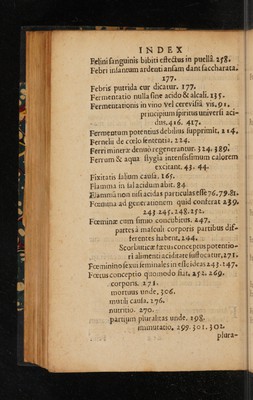 INDEX
Felini sanguinis bibiti effectus in puellâ 258.
Febri infantum ardenti ansam dant saccharata.
177.
Febris putrida cur dicatur. 177.
Fermentatio nulla sine acido & alcali. 235.
Fermentationis in vino vel cerevisiâ vis. 91.
principium spiritus universi aci-
dus. 416. 417.
Fermentum potentius debilius supprimit, 114.
Fernelii de cœlo sententia, 224.
Ferri mineræ denuò regenerantur. 324. 389.
Ferrum & aqua stygia intensissimum calorem
excitant. 43. 44.
Fixitatis salium causa. 165.
Flamma in sal acidum abit. 84
Flammâ non nisi acidas particulas esse 76. 79. 81.
Fœmina ad generationem quid conferat 239.
243 245. 248. 252.
Fœminæ cum simio concubitus. 247.
partes à masculi corporis partibus dif-
ferentes habent, 244.
Scorbuticæ fœtus conceptus potentio-
ri alimenti aciditate suffocatur, 271.
Fœminino sexui seminales inesse ideas 243. 247.
Fœtus conceptio quomodo fiat, 252. 269.
corporis. 271.
mortuus unde. 306.
mutili causa. 276.
nutritio. 270.
partium pluralitas unde. 298.
imminutatio, 299. 301. 302.
plura-